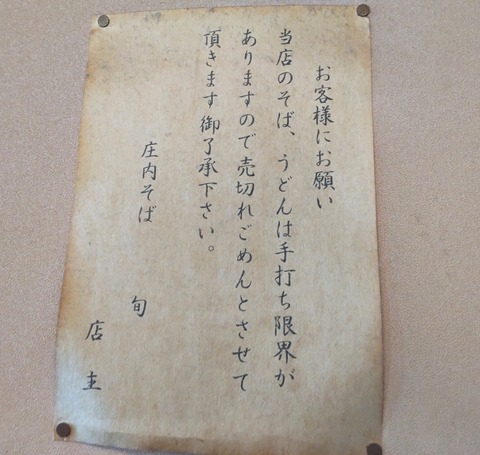 お客様にお願い
当店のそば、うどんは手打ち限界が
ありますので売切れごめんとさせて
頂きます御了承下さい。
庄内そば
旬
店主